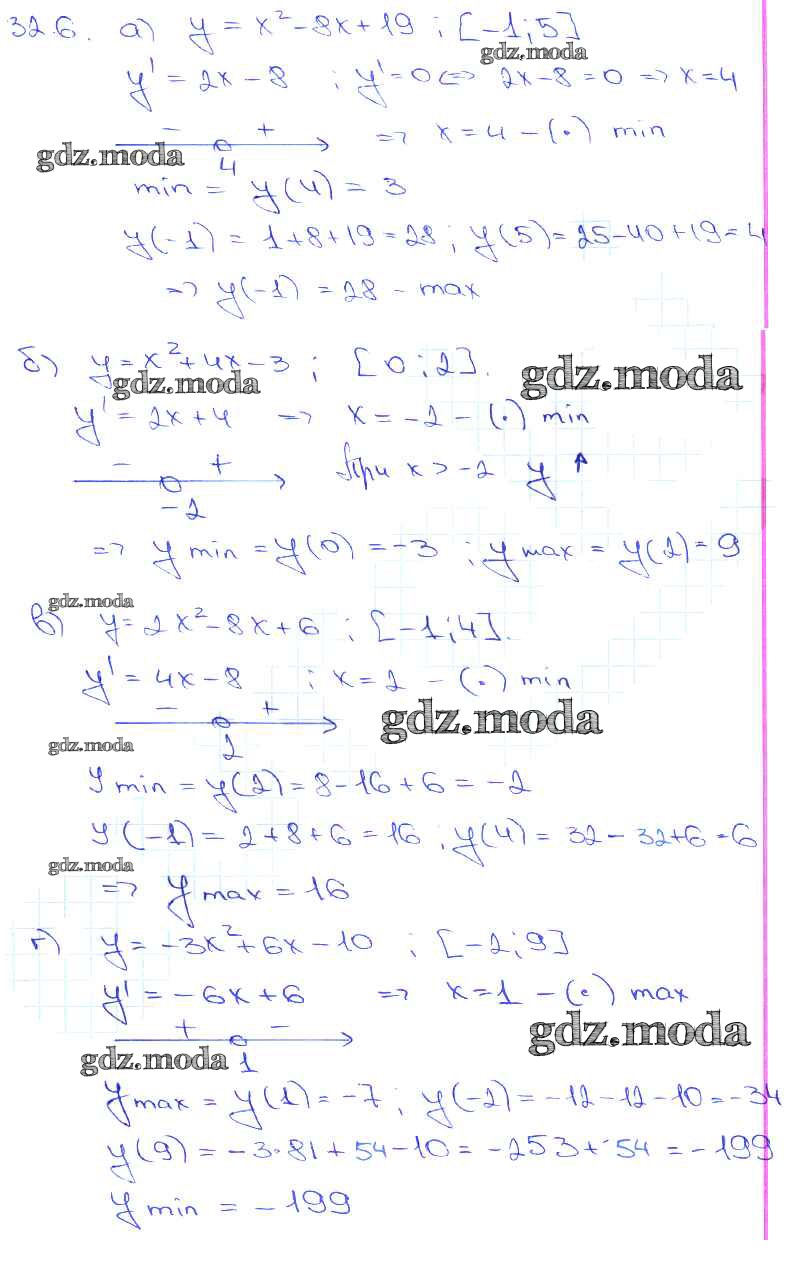 32.6. а) y = x² - 8x + 19 ; [-1;5]
gdz.moda
y' = 2x - 8 ; y' = 0 <=> 2x - 8 = 0 => x = 4
- + => x = 4 - (•) min
gdz.moda
4
min = y(4) = 3
y(-1) = 1+8+19=28 ; y(5) = 25-40+19=4
=> y(-1) = 28 - max
б) y = x² + 4x - 3 ; [0;2].
gdz.moda gdz.moda
y' = 2x + 4 => x = -2 - (•) min
- + При x > -2 y ↑
-2
=> y min = y(0) = -3 ; y max = y(2) = 9
gdz.moda
в) y = 2x² - 8x + 6 ; [-1;4].
y' = 4x - 8 ; x = 2 - (•) min
- +
gdz.moda
2
gdz.moda
y min = y(2) = 8-16+6 = -2
y(-1) = 2+8+6 = 16 ; y(4) = 32-32+6=6
gdz.moda
=> y max = 16
г) y = -3x² + 6x - 10 ; [-2;9]
y' = -6x + 6 => x = 1 - (•) max
+ -
gdz.moda
gdz.moda 1
y max = y(1) = -7 ; y(-2) = -12-12-10 = -34
y(9) = -3·81+54-10 = -253+54 = -199
y min = -199